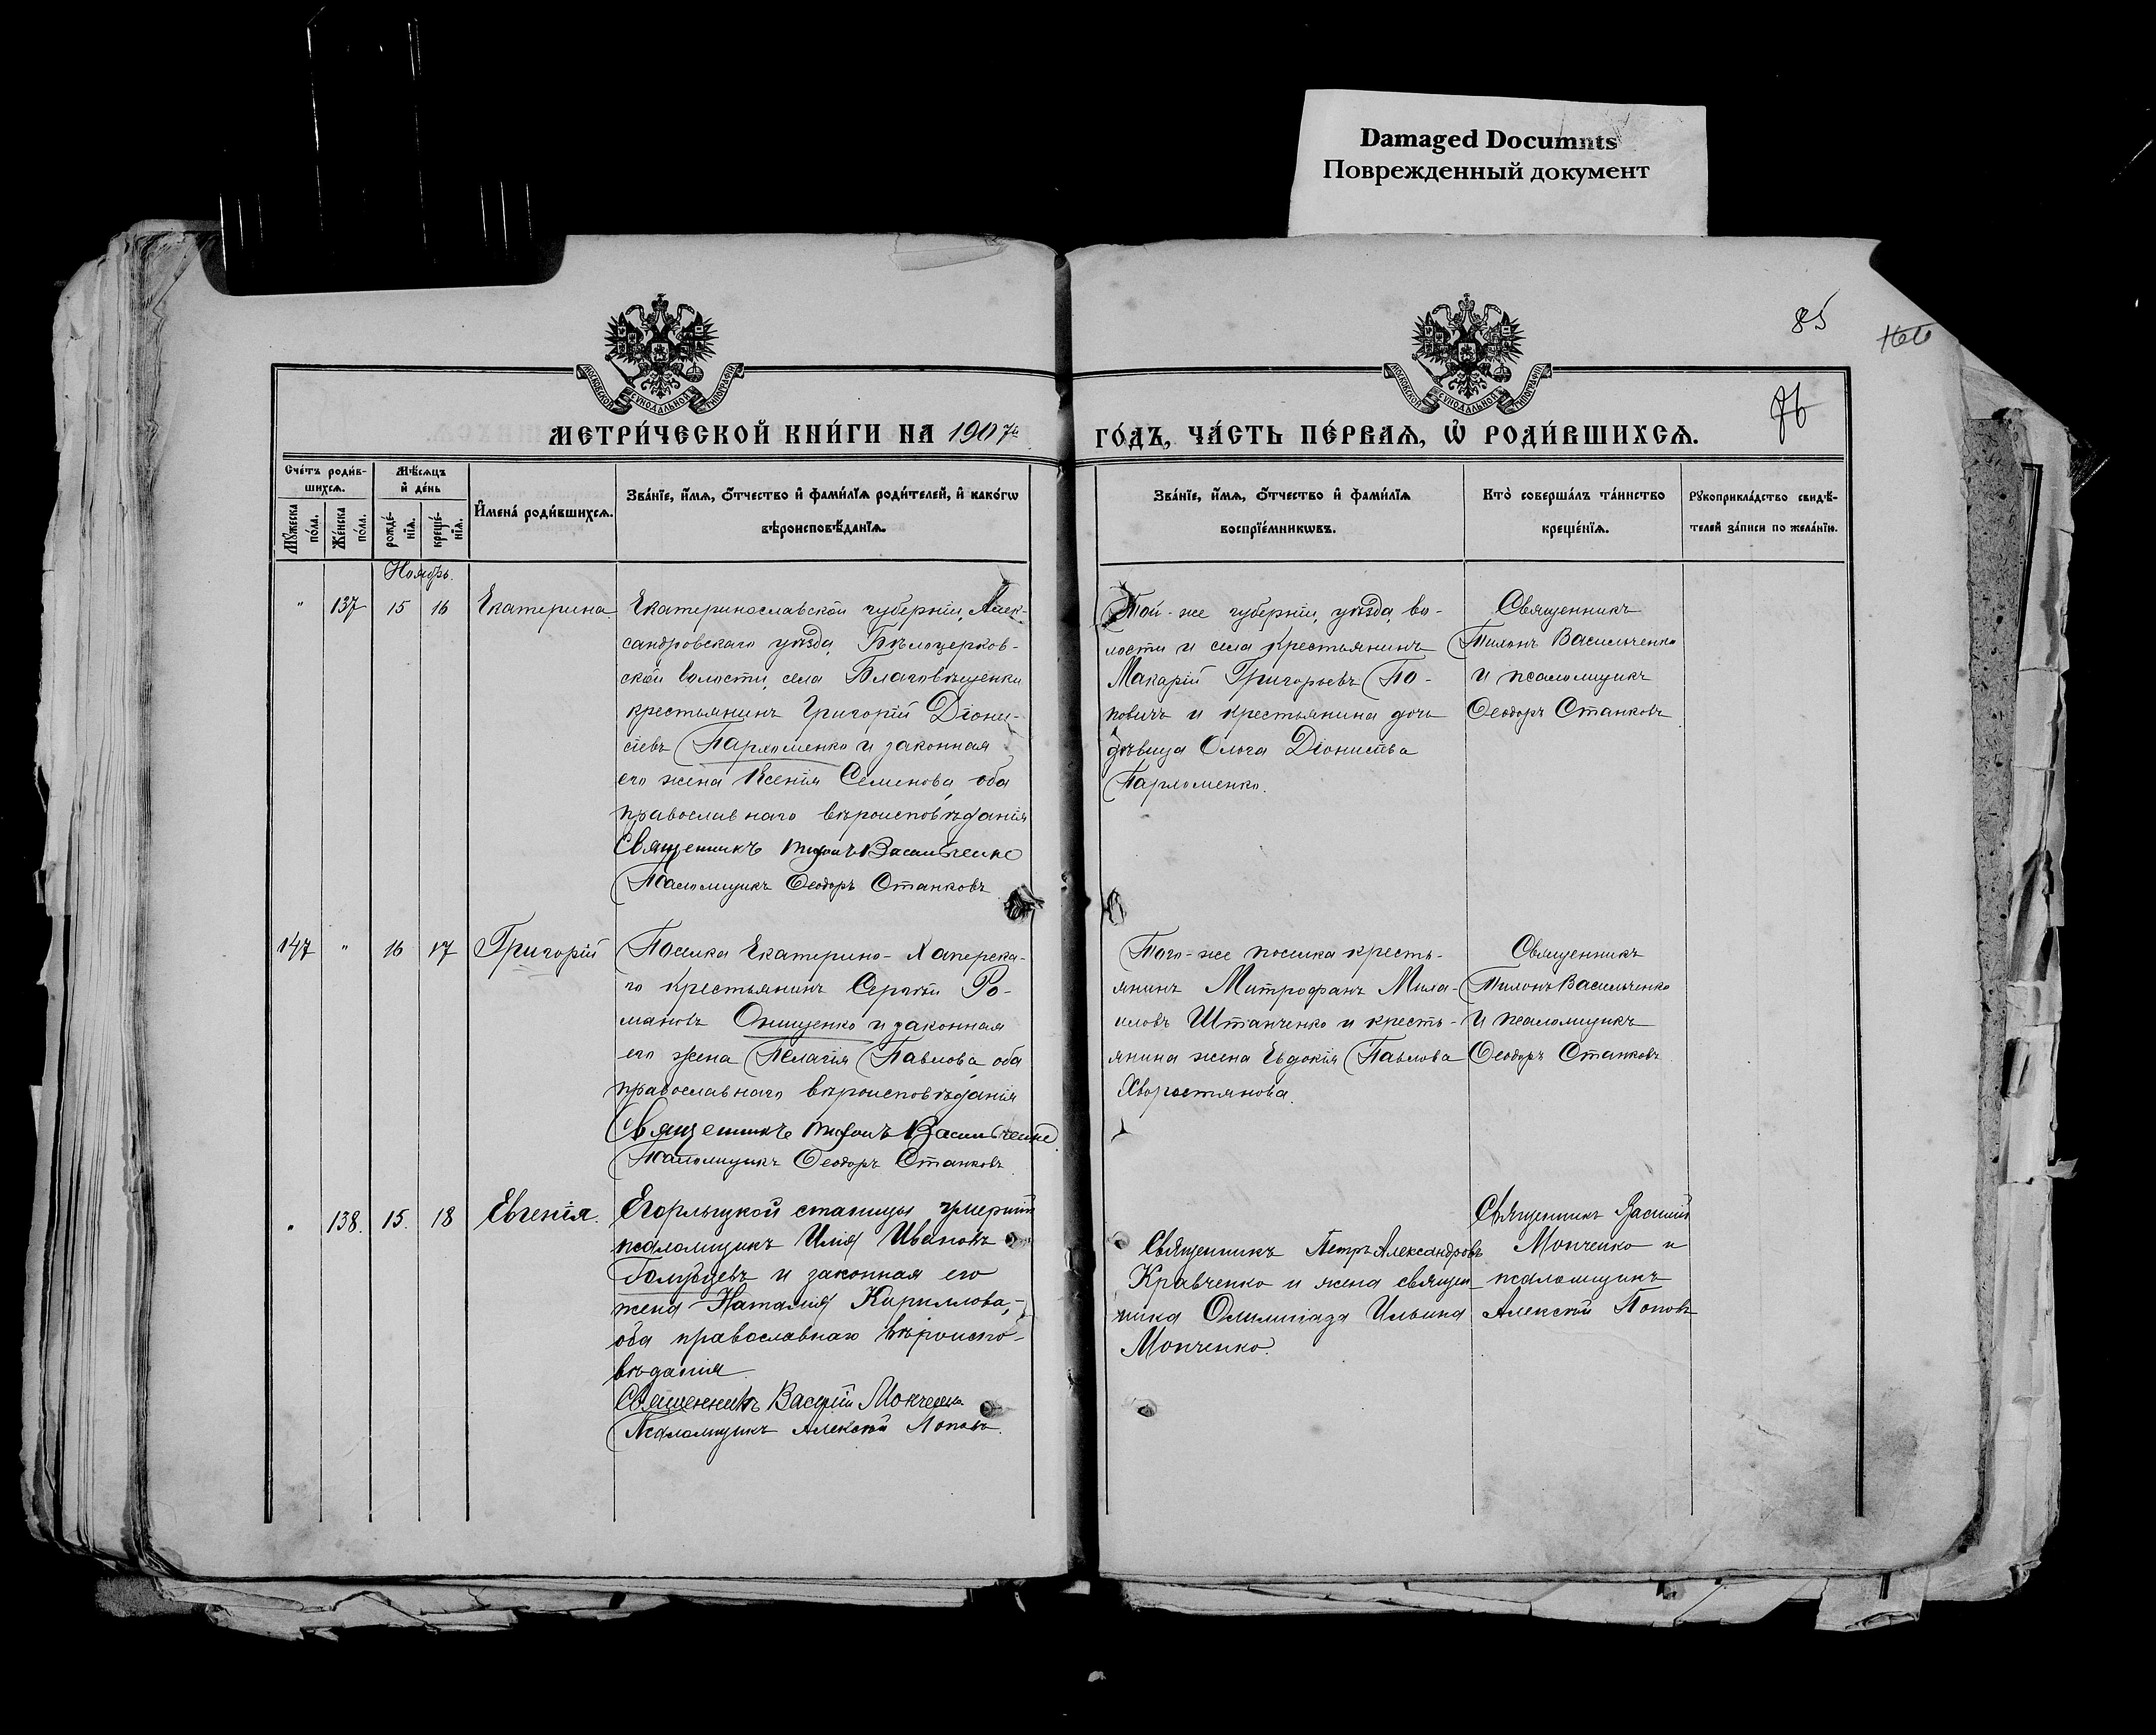 Damaged Documnts
Поврежденный документ
85
76
МОСКОВСКОЙ СѴНОДАЛЬНОЙ ТИПОГРАФІИ
МОСКОВСКОЙ СѴНОДАЛЬНОЙ ТИПОГРАФІИ
МЕТРИ́ЧЕСКОЙ КНИ́ГИ НА 1907й
ГО́ДЪ, ЧА́СТЬ ПЕ́РВАѦ, Ѡ҆ РОДИ́ВШИХСѦ.
Сче́тъ роди́в-
шихсѧ.
Мꙋ́жеска по́ла.
Же́нска по́ла.
Мѣ́сѧцъ
и҆ де́нь
рожде́-
нїѧ.
креще́-
нїѧ.
И҆мена́ роди́вшихсѧ.
Зва́нїе, и҆́мѧ, ѻ҆́тчество и҆ фами́лїѧ роди́телей, и҆ како́гѡ
вѣроисповѣ́данїѧ.
Зва́нїе, и҆́мѧ, ѻ҆́тчество и҆ фами́лїѧ
воспрїе́мникѡвъ.
Кто̀ соверша́лъ та́инство
креще́нїѧ.
Рꙋкоприкла́дство свидѣ́-
телей за́писи по жела́нїю.
Ноябрь.
" 137 15 16 Екатерина.
Екатеринославской губерніи, Алек-
сандровскаго уѣзда, Бѣлоцерков-
ской волости, села Благовѣщенки
крестьянинъ Григорій Діони-
сіевъ Пархоменко и законная
его жена Ксенія Семенова, оба
православнаго вѣроисповѣданія
Священникъ Тихонъ Васильченко
Псаломщикъ Ѳеодоръ Станковъ
Той-же губерніи, уѣзда, во-
лости и села крестьянинъ
Макарій Григорьевъ По-
повичъ и крестьянина дочь
дѣвица Ольга Діонисіева
Пархоменко.
Священникъ
Тихонъ Васильченко
и псаломщикъ
Ѳеодоръ Станковъ
147 " 16 17 Григорій
Поселка Екатерино-Хаперска-
го крестьянинъ Сергѣй Ро-
мановъ Онищенко и законная
его жена Пелагія Павлова, оба
православнаго вѣроисповѣданія
Священникъ Тихонъ Васильченко
Псаломщикъ Ѳеодоръ Станковъ
Того-же поселка кресть-
янинъ Митрофанъ Миха-
иловъ Штанченко и кресть-
янина жена Евдокія Павлова
Хворостянова.
Священникъ
Тихонъ Васильченко
и псаломщикъ
Ѳеодоръ Станковъ
" 138. 15. 18 Евгенія.
Егорлыцкой станицы умершій
псаломщикъ Илія Ивановъ
Голубцевъ и законная его
жена Наталія Кириллова,
оба православнаго вѣроиспо-
вѣданія.
Священникъ Василій Мокченко
Псаломщикъ Алексѣй Поповъ.
Священникъ Петръ Александровъ
Кравченко и жена священ-
ника Олимпіада Ильина
Мокченко.
Священникъ Василій
Мокченко и
псаломщикъ
Алексѣй Поповъ